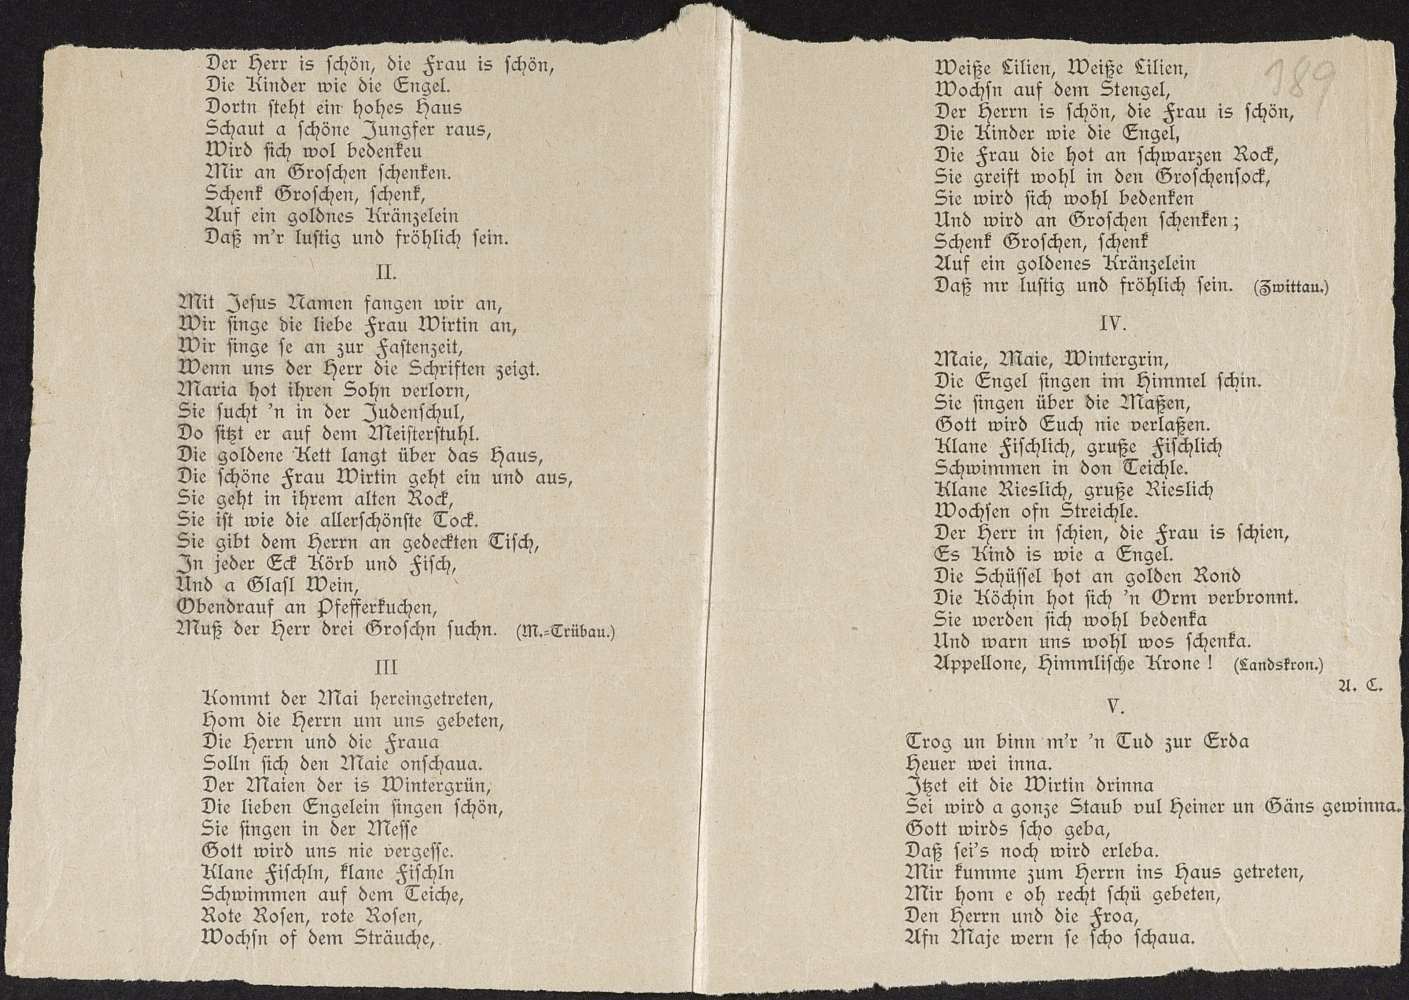 Der Herr is ſchön, die Frau is ſchön,
Die Kinder wie die Engel.
Dortn ſteht ein hohes Haus
Schaut a ſchöne Jungfer raus,
Wird ſich wol bedenkeu
Mir an Groſchen ſchenken.
Schenk Groſchen, ſchenk,
Auf ein goldnes Kränzelein
Daß m'r luſtig und fröhlich ſein.
II.
Mit Jeſus Namen fangen wir an,
Wir ſinge die liebe Frau Wirtin an,
Wir ſinge ſe an zur Faſtenzeit,
Wenn uns der Herr die Schriften zeigt.
Maria hot ihren Sohn verlorn,
Sie ſucht 'n in der Judenſchul,
Do ſitzt er auf dem Meiſterſtuhl.
Die goldene Kett langt über das Haus,
Die ſchöne Frau Wirtin geht ein und aus,
Sie geht in ihrem alten Rock,
Sie iſt wie die allerſchönſte Tock.
Sie gibt dem Herrn an gedeckten Tiſch,
In jeder Eck Körb und Fiſch,
Und a Glaſl Wein,
Obendrauf an Pfefferkuchen,
Muß der Herr drei Groſchn ſuchn. (M.=Trübau.)
III
Kommt der Mai hereingetreten,
Hom die Herrn um uns gebeten,
Die Herrn und die Fraua
Solln ſich den Maie onſchaua.
Der Maien der is Wintergrün,
Die lieben Engelein ſingen ſchön,
Sie ſingen in der Meſſe
Gott wird uns nie vergeſſe.
Klane Fiſchln, klane Fiſchln
Schwimmen auf dem Teiche,
Rote Roſen, rote Roſen,
Wochſn of dem Sträuche,
189
Weiße Lilien, Weiße Lilien,
Wochſn auf dem Stengel,
Der Herrn is ſchön, die Frau is ſchön,
Die Kinder wie die Engel,
Die Frau die hot an ſchwarzen Rock,
Sie greift wohl in den Groſchenſock,
Sie wird ſich wohl bedenken
Und wird an Groſchen ſchenken;
Schenk Groſchen, ſchenk
Auf ein goldenes Kränzelein
Daß mr luſtig und fröhlich ſein. (Zwittau.)
IV.
Maie, Maie, Wintergrin,
Die Engel ſingen im Himmel ſchin.
Sie ſingen über die Maßen,
Gott wird Euch nie verlaßen.
Klane Fiſchlich, gruße Fiſchlich
Schwimmen in don Teichle.
Klane Rieslich, gruße Rieslich
Wochſen ofn Streichle.
Der Herr in ſchien, die Frau is ſchien,
Es Kind is wie a Engel.
Die Schüſſel hot an golden Rond
Die Köchin hot ſich 'n Orm verbronnt.
Sie werden ſich wohl bedenka
Und warn uns wohl wos ſchenka.
Appellone, Himmliſche Krone! (Landskron.)
A. C.
V.
Trog un binn m'r 'n Tud zur Erda
Heuer wei inna.
Itzet eit die Wirtin drinna
Sei wird a gonze Staub vul Heiner un Gäns gewinna.
Gott wirds ſcho geba,
Daß ſei's noch wird erleba.
Mir kumme zum Herrn ins Haus getreten,
Mir hom e oh recht ſchü gebeten,
Den Herrn und die Froa,
Afn Maje wern ſe ſcho ſchaua.